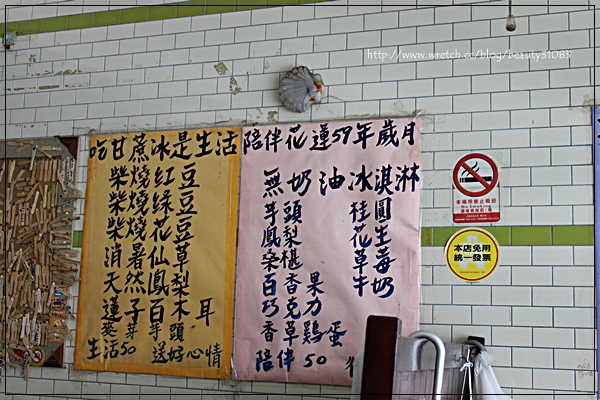 http://www.wretch.cc/blog/beauty31083
吃甘蔗冰是生活
柴燒紅豆
柴燒綠豆
柴燒花豆
消暑仙草
天然鳳梨
蓮子百木耳
麥芽芋頭
生活50 送好心情
陪伴花蓮59年歲月
無奶油冰淇淋
芋頭 桂圓
鳳梨 花生
桑椹 草莓
百香果 牛奶
巧克力
香草雞蛋
陪伴50
本場所禁止吸菸
No Smoking
本店免用
統一發票